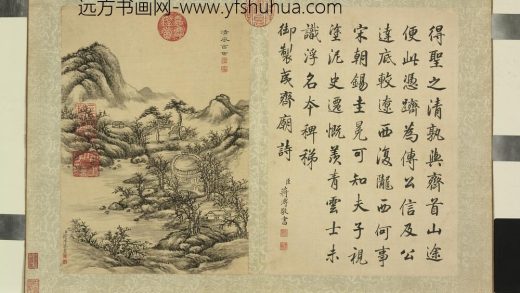 远方书画网-www.yfshuhua.com
得聖之清孰與齊首山途
便此憑躋為傳公信及公
達底較遼西復隴西何事
宋朝錫圭冕可知夫子視
塗泥史遷慨羨青雲士未
識浮名夲稗稊
御製夷齊廟詩
臣蔣溥敬書
清風百世